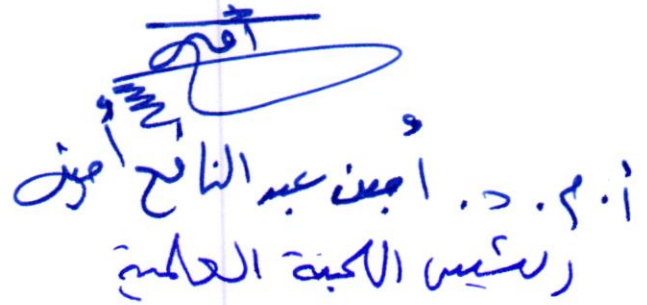 أ.م.د. أيمن عبد الفتاح أمين
رئيس اللجنة العلمية